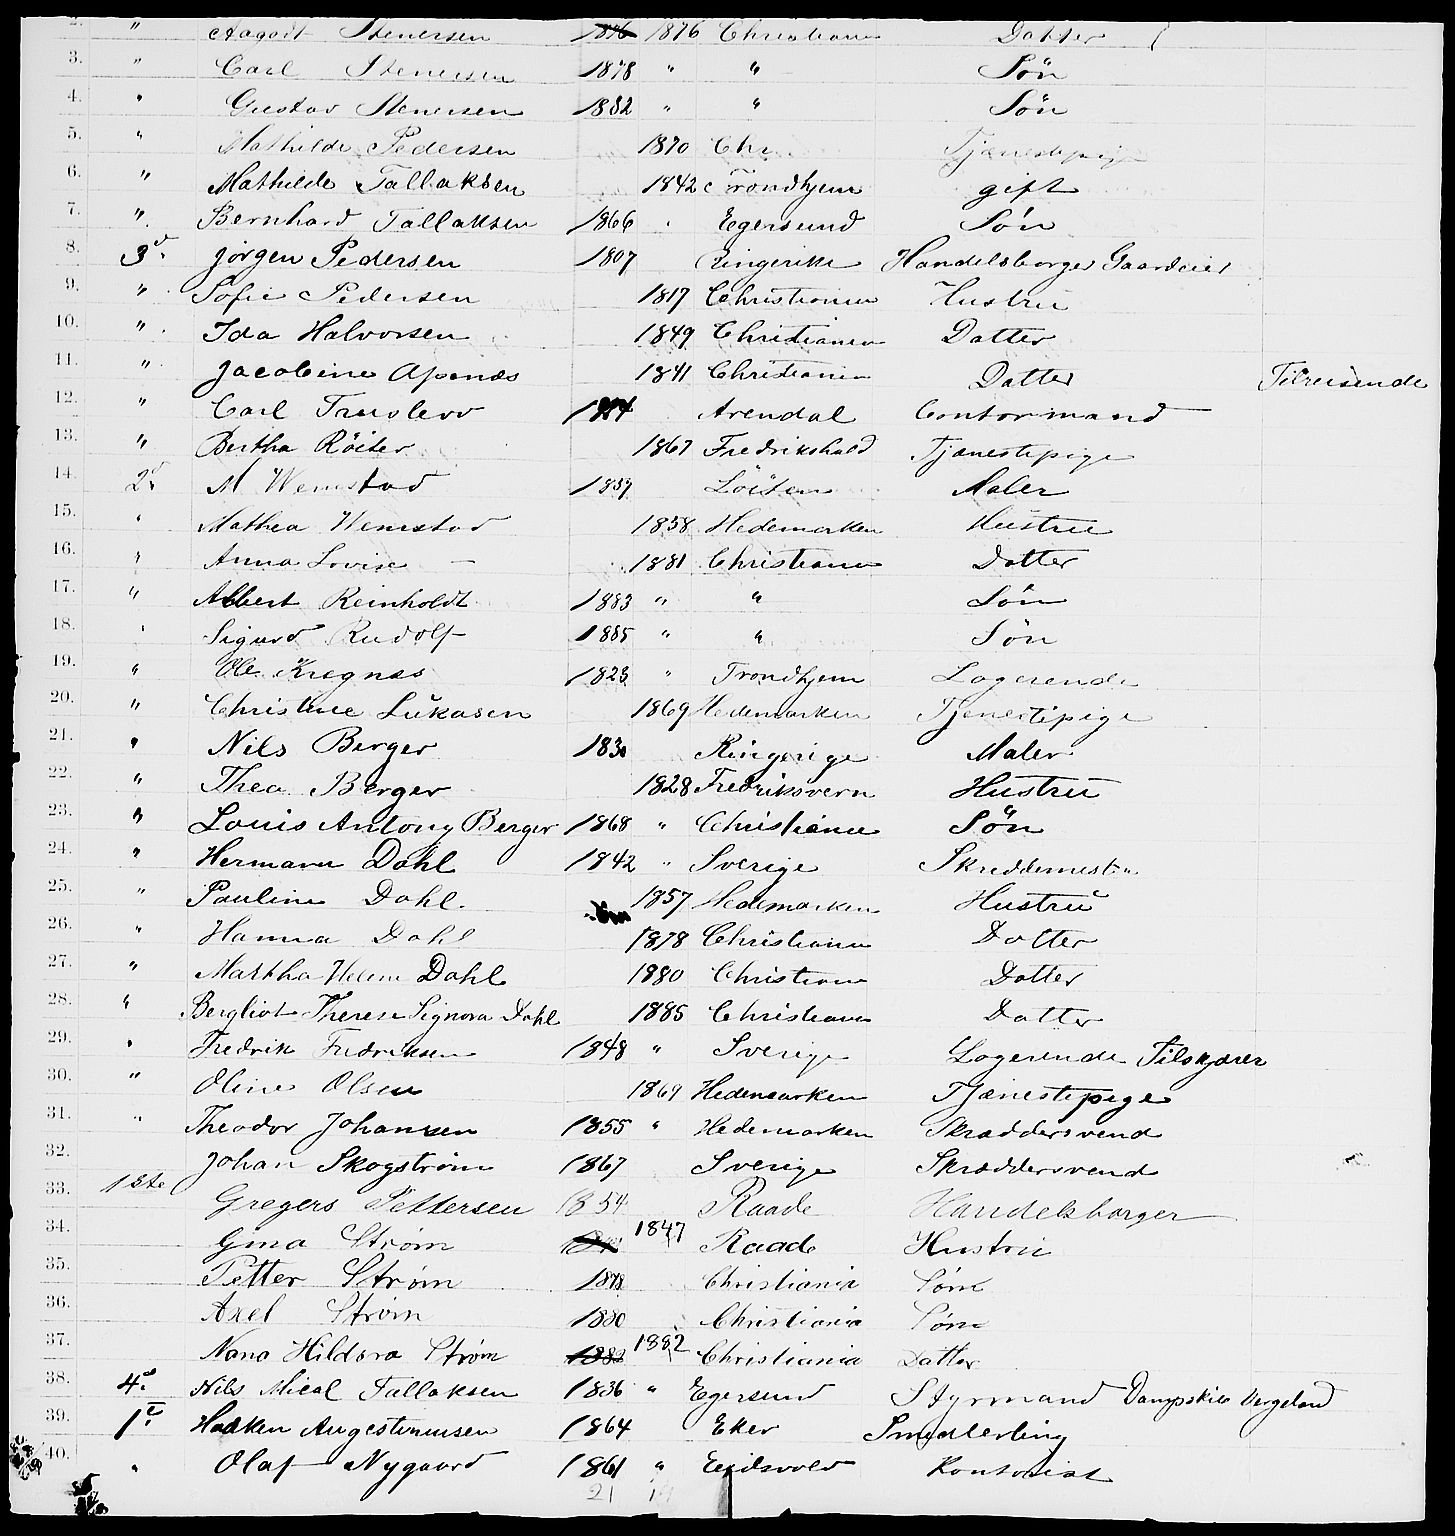 2. " Aagodt Stenersen 1876 1876 Christiania Datter
3. " Carl Stenersen 1878 " " Søn
4. " Gustav Stenersen 1882 " " Søn
5. " Mathilde Pedersen 1870 Chr. Tjenestepige
6. " Mathilde Tallaksen 1842 Trondhjem gift
7. " Bernhard Tallaksen 1866 Egersund Søn
8. 3d. Jørgen Pedersen 1807 Ringerike Handelsborger Gaardeier
9. " Sofie Pedersen 1817 Christiania Hustru
10. " Ida Halvorsen 1849 Christiania Datter
11. " Jacobine Apenæs 1841 Christiania Datter Tilreisende
12. " Carl Truslew Arendal Contormand
13. " Bertha Röiter 1867 Fredrikshald Tjenestepige
14. 2d. M Wemstad 1859 Löiten Maler
15. " Mathea Wemstad 1858 Hedemarken Hustru
16. " Anna Lovise — 1881 Christiania Datter
17. " Albert Reinholdt 1883 " " Søn
18. " Sigurd Rudolf 1885 " " Søn
19. " Ole Kregnæs 1823 " Trondhjem Logerende
20. " Christine Lukasen 1869 Hedemarken Tjenestepige
21. " Nils Berger 1830 Ringerige Maler
22. " Thea Berger 1828 Fredriksvern Hustru
23. " Louis Antony Berger 1868 " Christiania Søn
24. " Hermann Dahl 1842 " Sverige Skreddermester
25. " Pauline Dahl 1857 Hedemarken Hustru
26. " Hanna Dahl 1878 Christiania Datter
27. " Martha Helene Dahl 1880 Christiania Datter
28. " Bergliot Therese Signora Dahl 1885 Christiania Datter
29. " Fredrik Fredriksen 1848 " Sverige Logerende Tilskjærer
30. " Oline Olsen 1869 Hedemarken Tjænestepige
31. " Theodor Johansen 1855 " Hedemarken Skræddersvend
32. Johan Skogstrøm 1867 Sverige Skræddersvend
33. 1ste Gregers Pettersen 1854 Raade Handelsborger
34. Gina Strøm 1847 Raade Hustru
35. Petter Strøm 1878 Christiania Sønn
36. Axel Strøm 1880 Christiania Sønn
37. Nana Hildora Strøm 1882 1882 Christiania Datter
38. 4d. Nils Mical Tallaksen 1836 " Egersund Styrmand Dampskib Vergeland
39. 1ē. Haaken Augestinussen 1864 Eker Smedlerling
40. " Olaf Nygaard 1861 " Eidsvold Kontorist
21 19